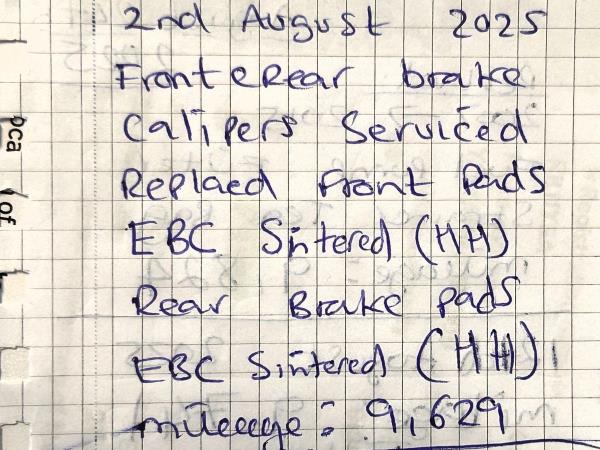 2nd August 2025
Front & Rear brake
Calipers Serviced
Replaed Front Pads
EBC Sintered (HH)
Rear Brake pads
EBC Sintered (HH)
mileage: 9,629
pca
of